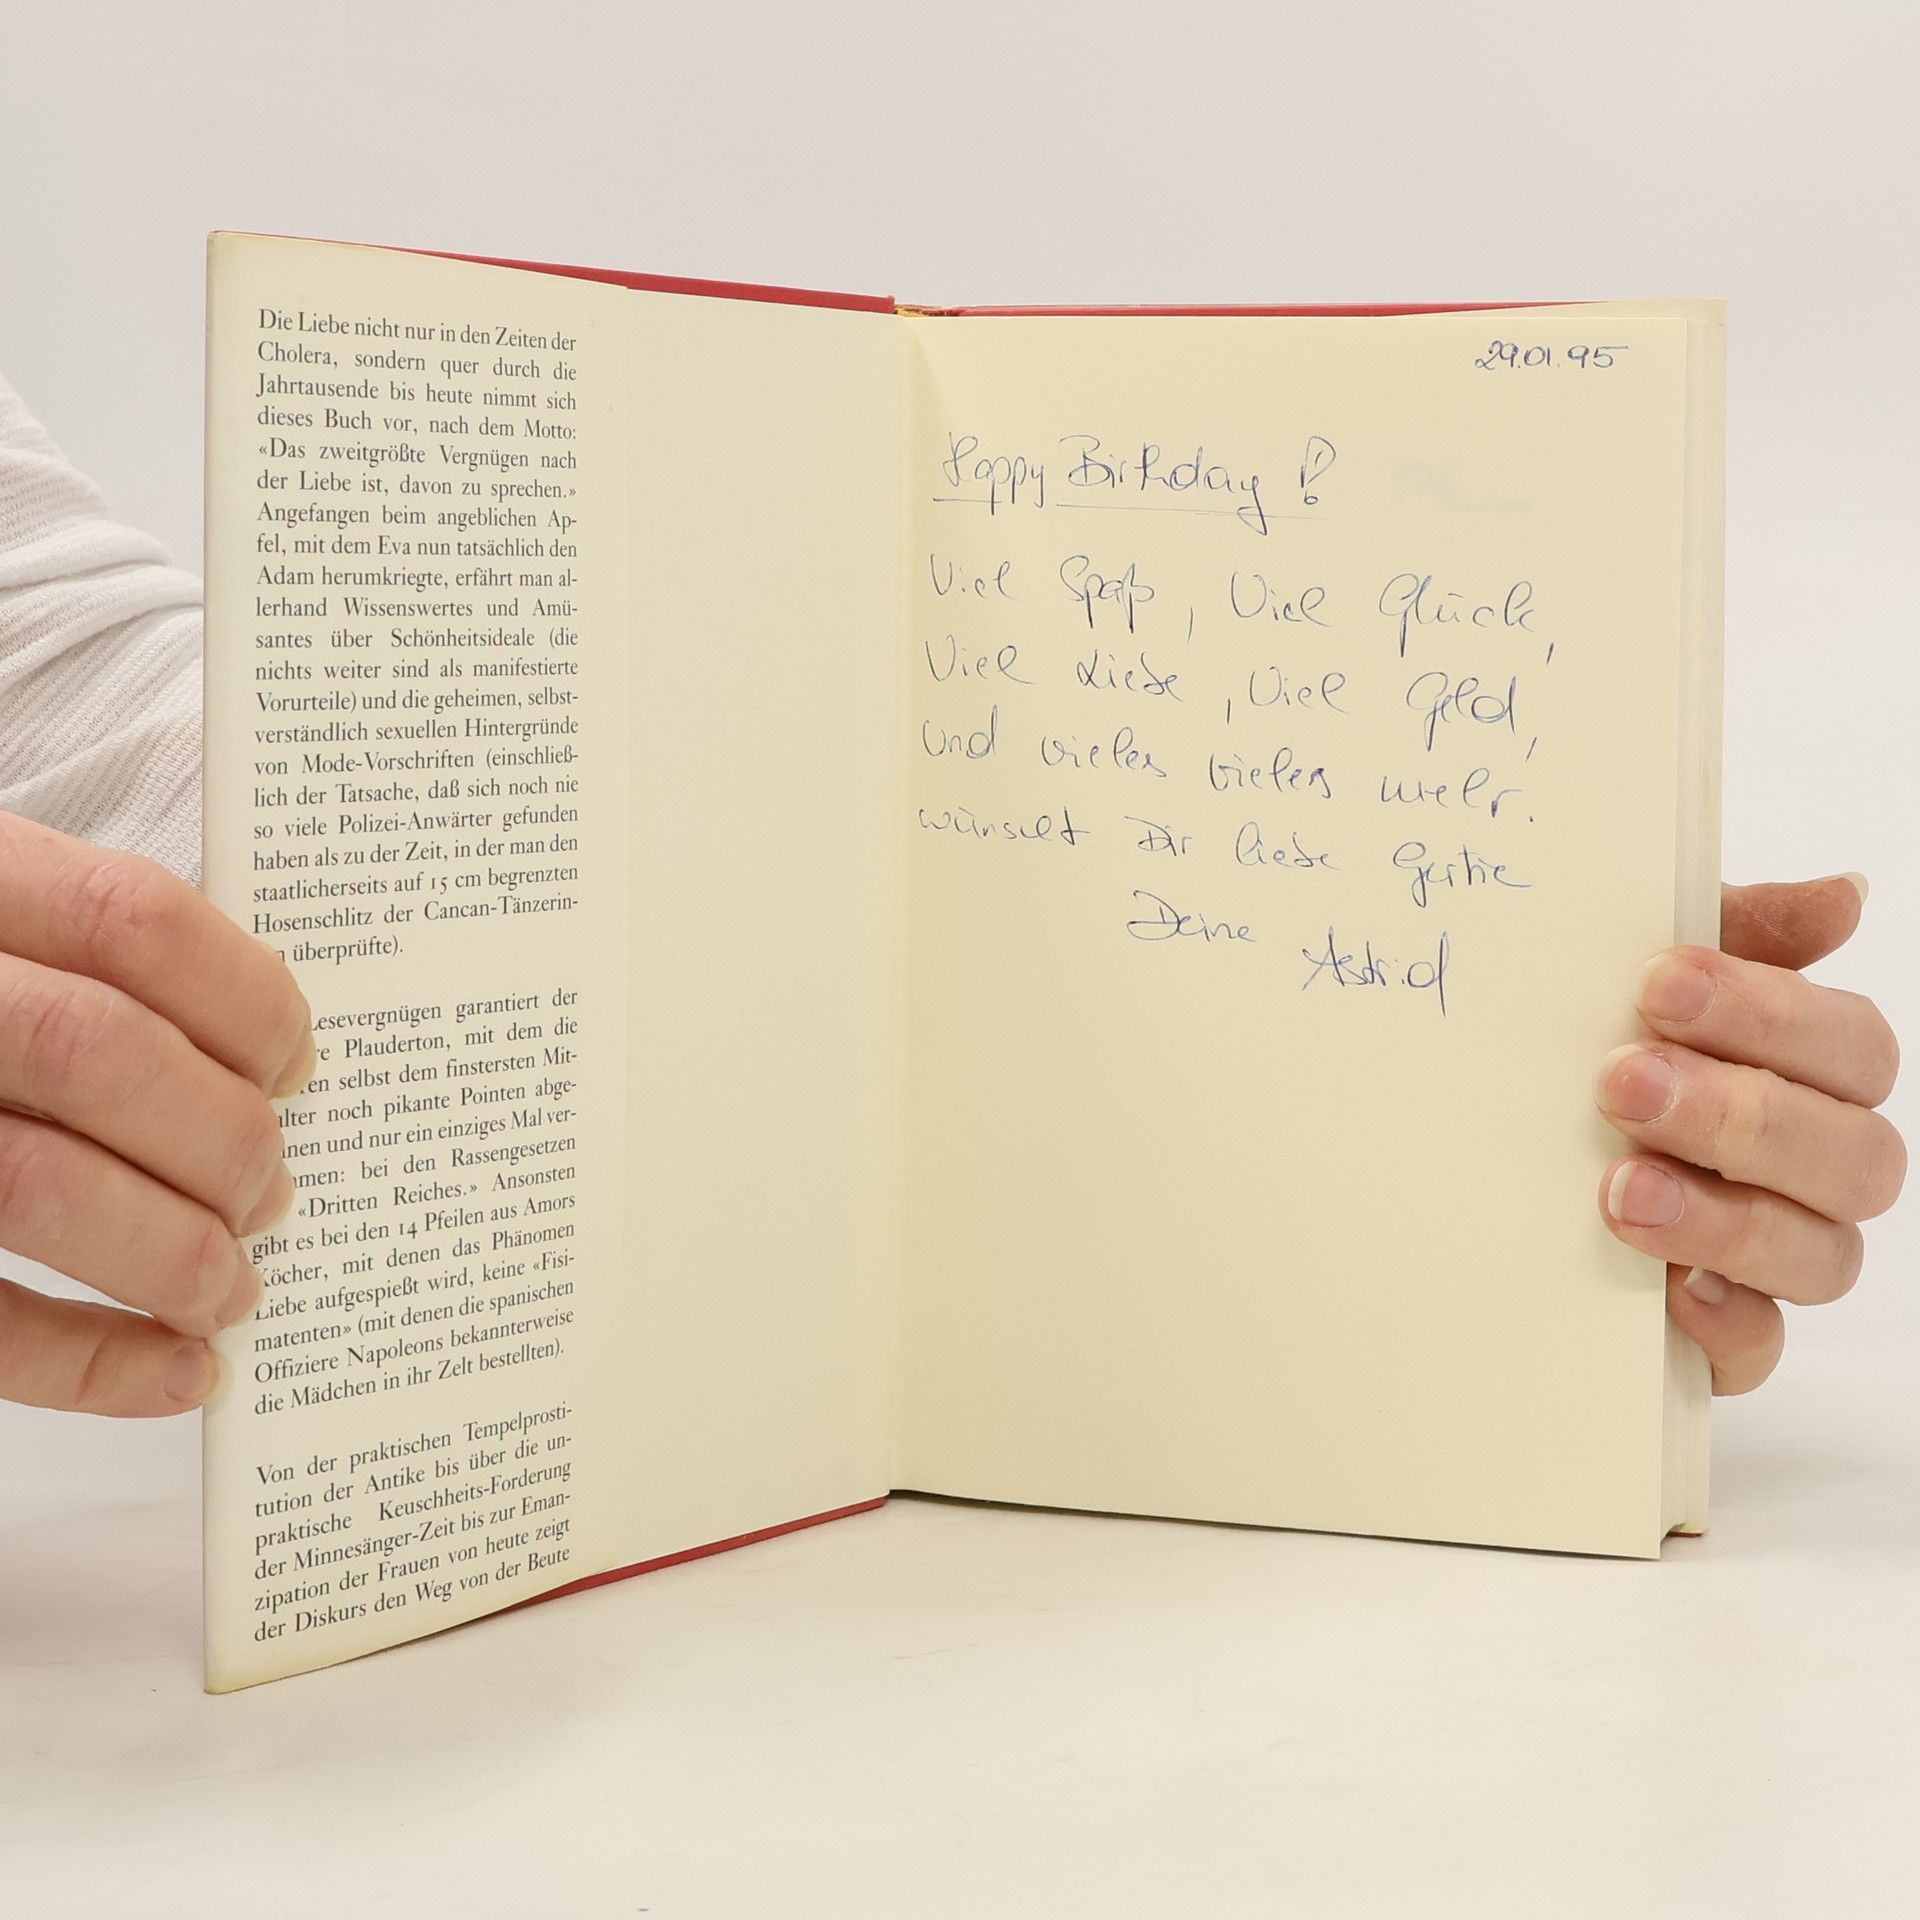 Die Liebe nicht nur in den Zeiten der
Cholera, sondern quer durch die
Jahrtausende bis heute nimmt sich
dieses Buch vor, nach dem Motto:
«Das zweitgrößte Vergnügen nach
der Liebe ist, davon zu sprechen.»
Angefangen beim angeblichen Ap-
fel, mit dem Eva nun tatsächlich den
Adam herumkriegte, erfährt man al-
lerhand Wissenswertes und Amü-
santes über Schönheitsideale (die
nichts weiter sind als manifestierte
Vorurteile) und die geheimen, selbst-
verständlich sexuellen Hintergründe
von Mode-Vorschriften (einschließ-
lich der Tatsache, daß sich noch nie
so viele Polizei-Anwärter gefunden
haben als zu der Zeit, in der man den
staatlicherseits auf 15 cm begrenzten
Hosenschlitz der Cancan-Tänzerin-
überprüfte).
Lesevergnügen garantiert der
Plauderton, mit dem die
selbst dem finstersten Mit-
noch pikante Pointen abge-
und nur ein einziges Mal ver-
bei den Rassengesetzen
«Dritten Reiches.» Ansonsten
gibt es bei den 14 Pfeilen aus Amors
Köcher, mit denen das Phänomen
Liebe aufgespießt wird, keine «Fisi-
matenten» (mit denen die spanischen
Offiziere Napoleons bekannterweise
die Mädchen in ihr Zelt bestellten).
Von der praktischen Tempelprosti-
tution der Antike bis über die un-
praktische Keuschheits-Forderung
der Minnesänger-Zeit bis zur Eman-
zipation der Frauen von heute zeigt
der Diskurs den Weg von der Beute
29.01.95
Happy Birthday!
Viel Spaß, Viel Glück,
Viel Liebe, Viel Geld,
und vieles vieles mehr.
wünscht Dir liebe Gertie
Deine Astrid